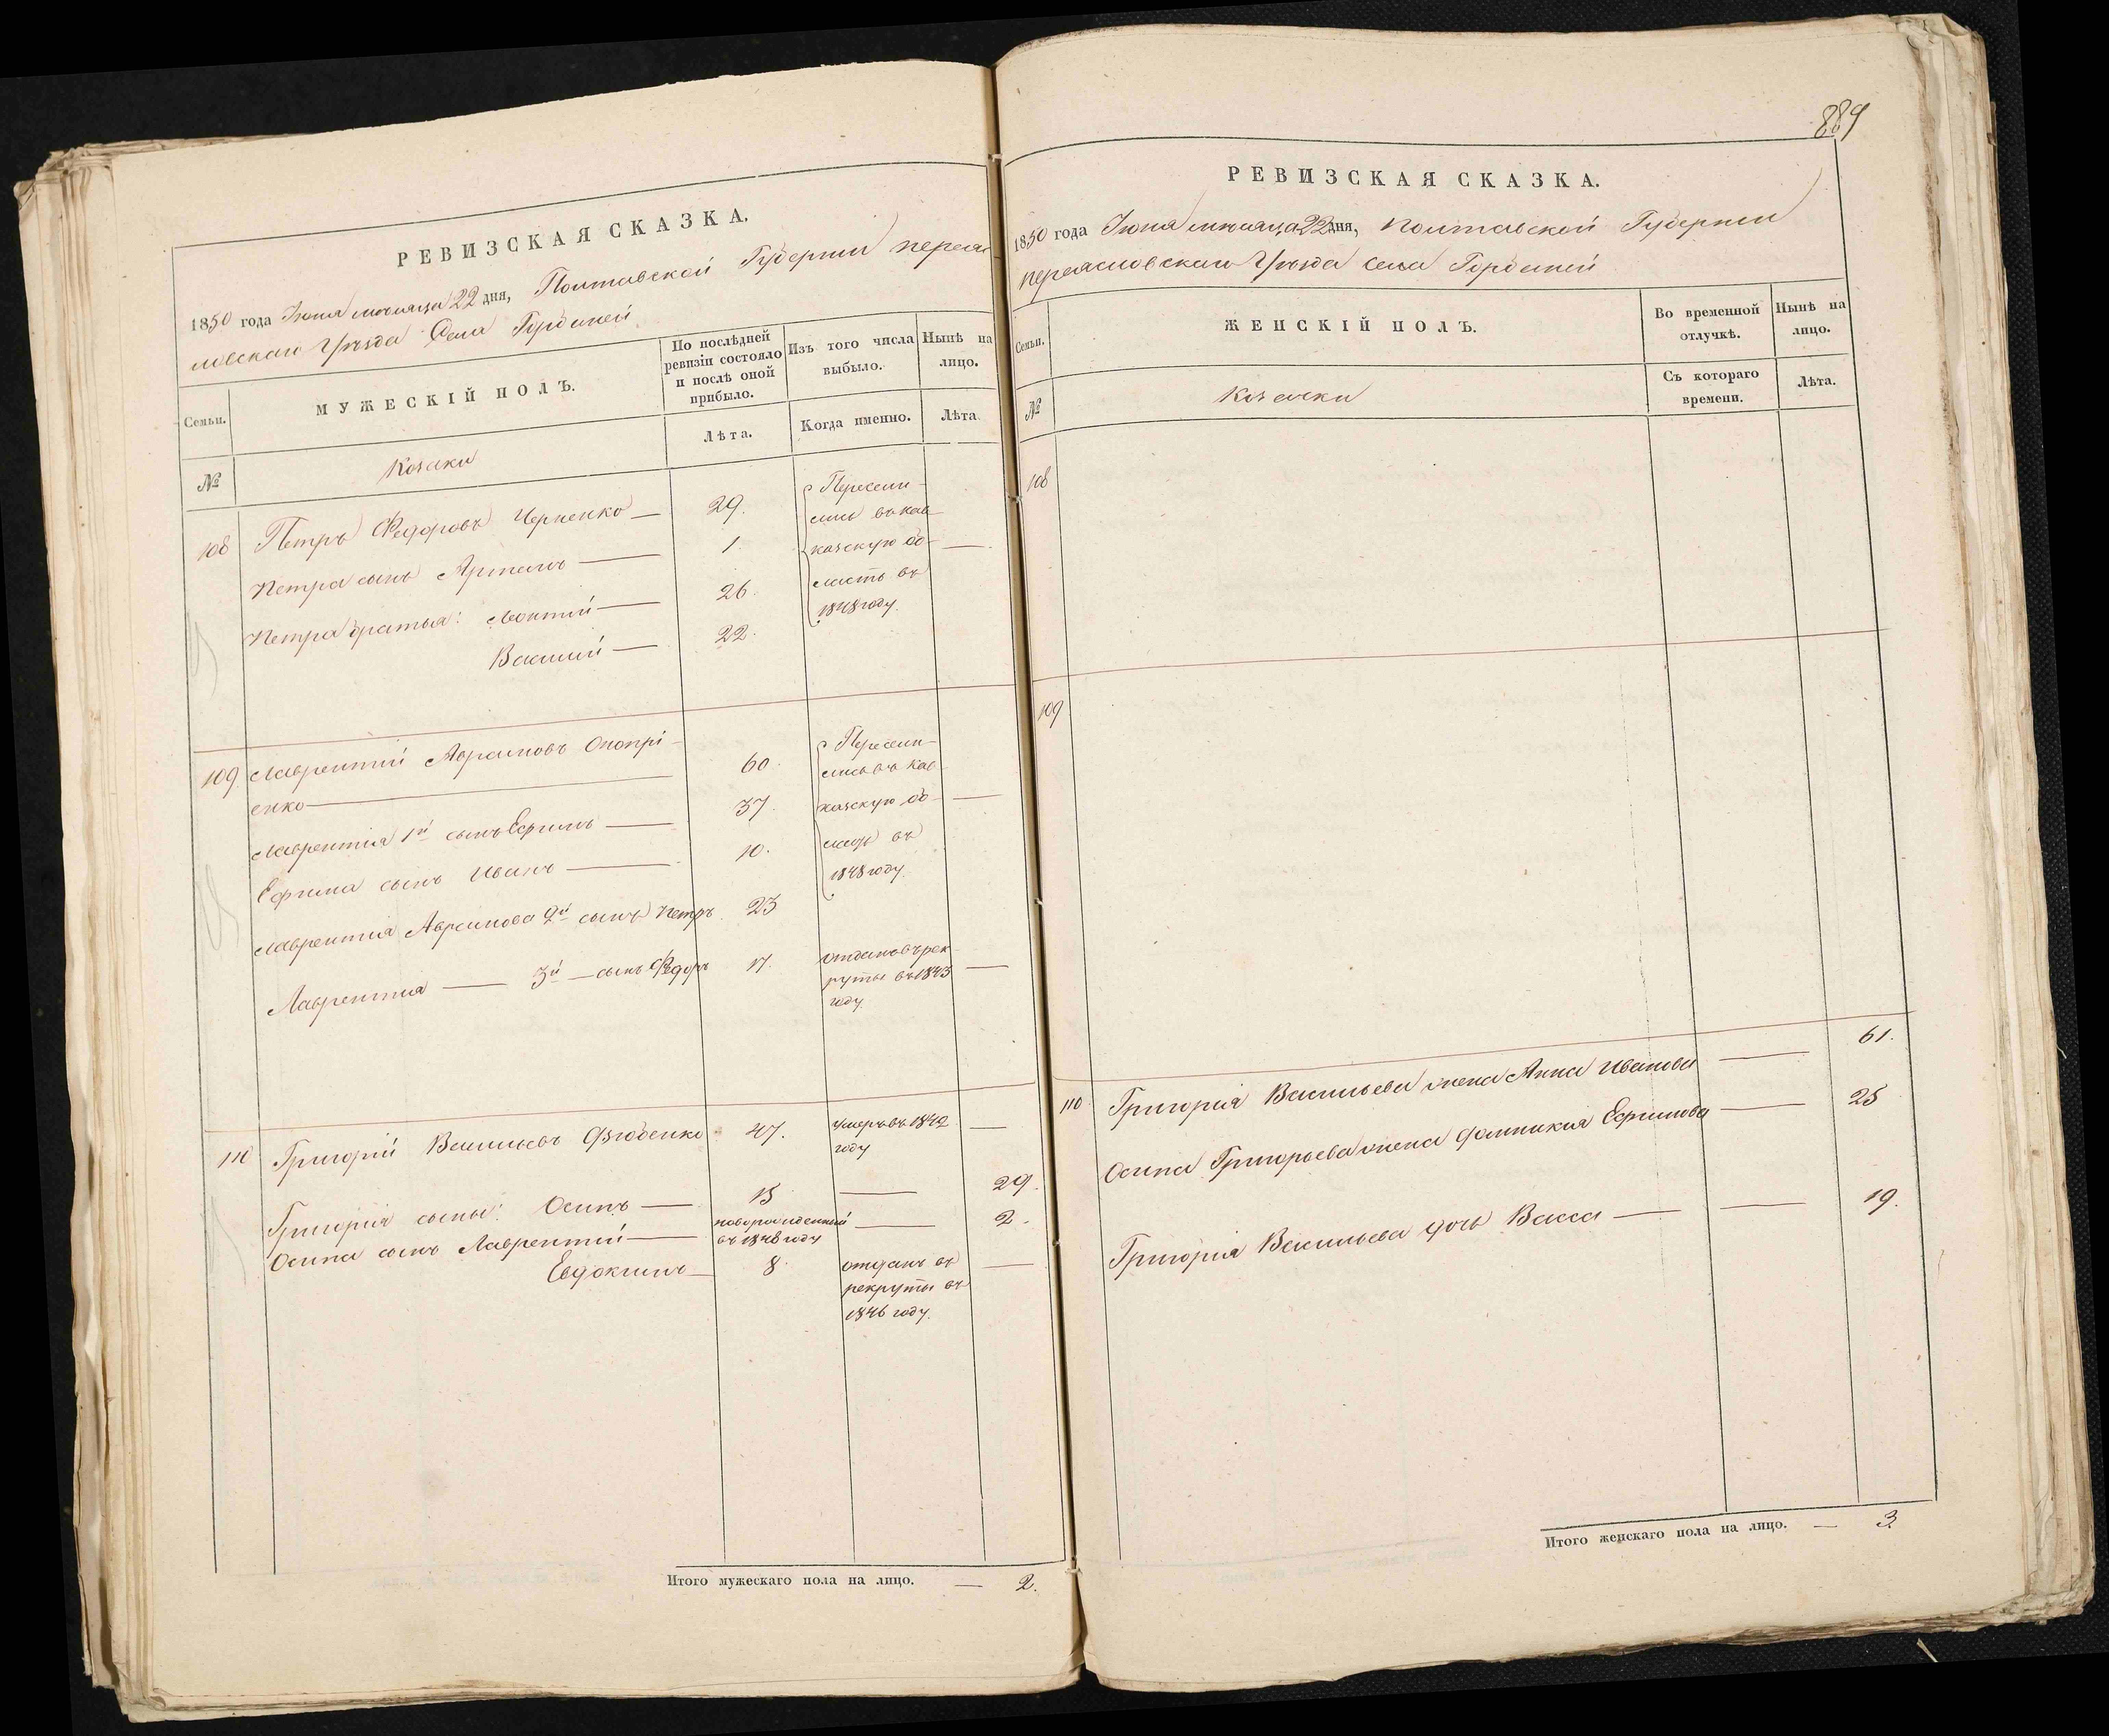 РЕВИЗСКАЯ СКАЗКА.
1850 года Іюня мѣсяца 22 дня, Полтавской Губерніи переяс
ловскаго Уѣзда Села
Семьи.
МУЖЕСКІЙ ПОЛЪ.
По послѣдней
ревизіи состояло
и послѣ оной
прибыло.
Изъ того числа
выбыло.
Нынѣ на
лицо.
Лѣта.
Когда именно.
Лѣта.
№
Козаки
108 Петръ Федоровъ Черненко — 29.
Петра сынъ Артемъ — 1
Петра братья: Леонтій — 26.
Василій — 22.
Пересели-
лись въ кав-
казскую об- —
ласть въ
1848 году.
109. Лаврентій Аврамовъ Онопрі-
енко — 60.
Лаврентія 1й сынъ Ефимъ — 37.
Ефима сынъ Иванъ — 10.
Лаврентія Аврамова 2й сынъ Петръ 23
Пересели-
лись въ Кав-
казскую об- —
ласть въ
1848 году.
Лаврентія — 3й — сынъ Федоръ 17.
отданъ въ рек-
руты въ 1843 —
году.
110 Григорій Васильевъ Дзюбенко 47. умеръ въ 1842 —
году
Григорія сыны: Осипъ — 15 — 29.
Осипа сынъ Лаврентій — новорожденный — 2.
въ 1848 году
Евдокимъ — 8. отданъ въ —
рекруты въ
1846 году.
Итого мужескаго пола на лицо. — 2.
889
РЕВИЗСКАЯ СКАЗКА.
1850 года Іюня мѣсяца 22 дня, Полтавской Губерніи
переясловскаго Уѣзда села
Семьи.
ЖЕНСКІЙ ПОЛЪ.
Во временной
отлучкѣ.
Нынѣ на
лицо.
№
Козачки
Съ котораго
времени.
Лѣта.
108
109
110 Григорія Васильева жена Анна Иванова — 61.
Осипа Григорьева жена Домникія Ефимова — 25
Григорія Васильева дочь Васса — — 19.
Итого женскаго пола на лицо. — 3.